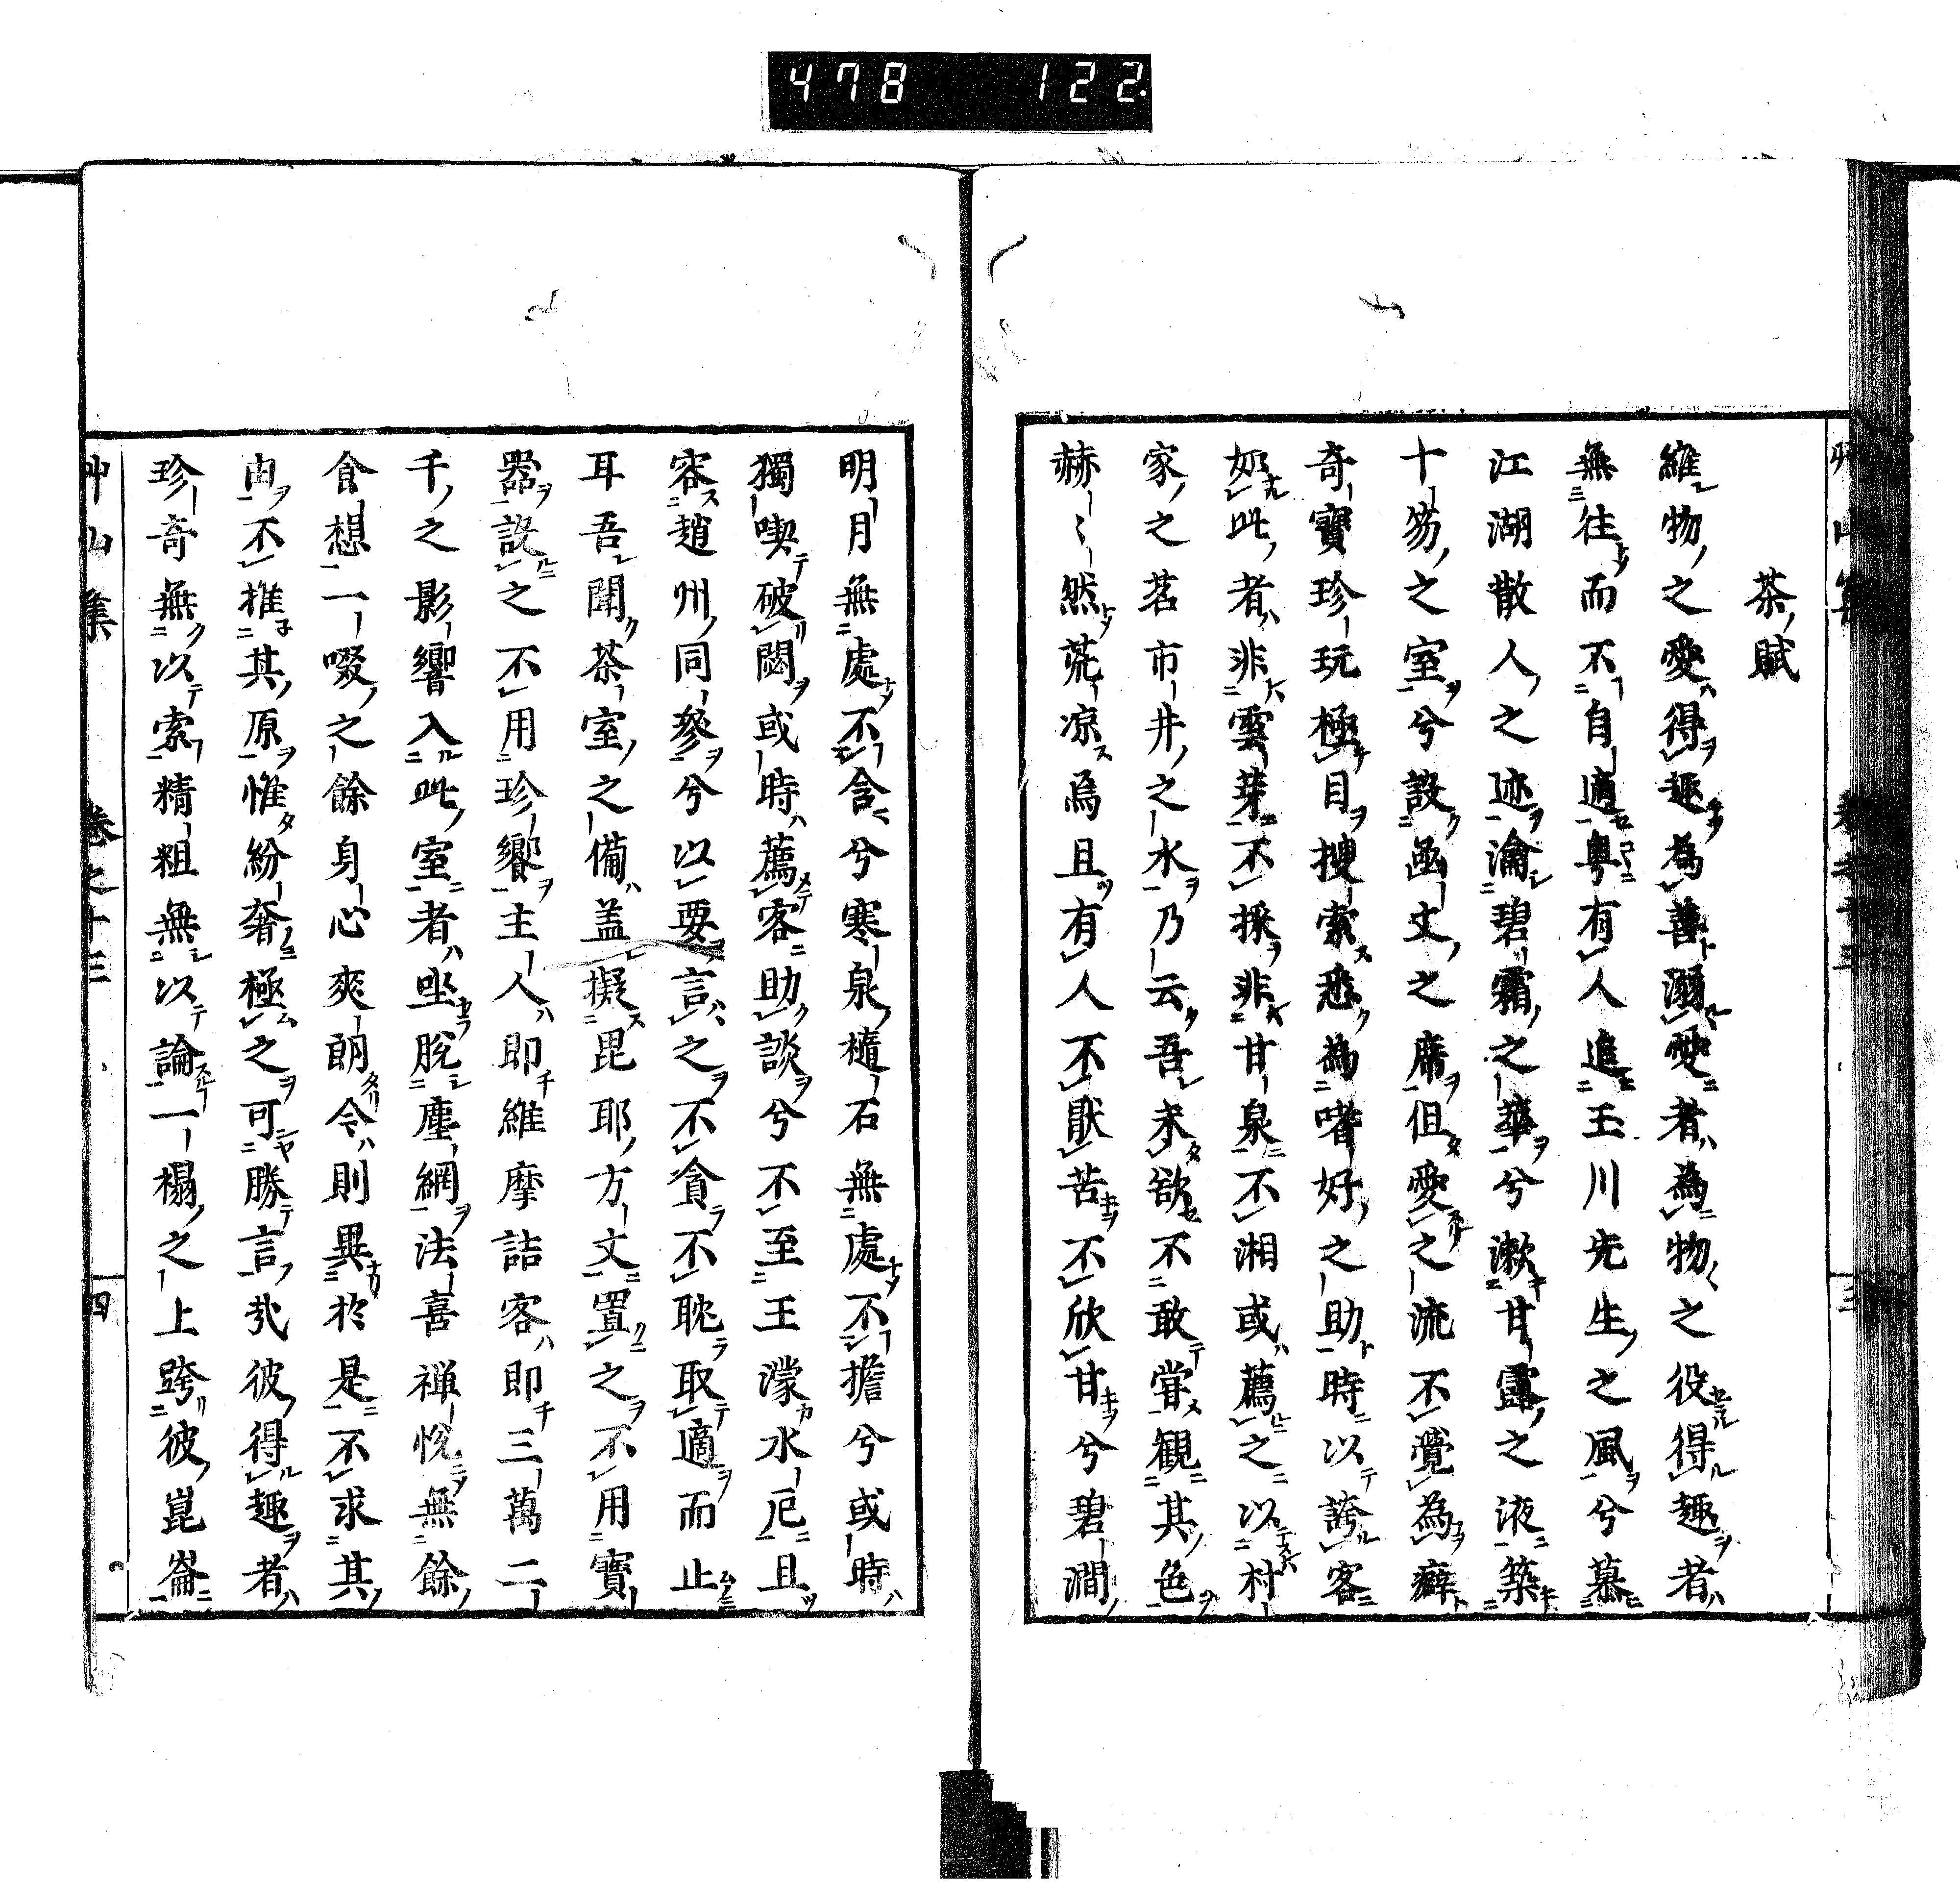 478 122
茶賦
維物之愛得趣為善溺愛者為物之役得趣者
無往而不自適粤有人追玉川先生之風兮慕
江湖散人之迹瀹碧霜之華兮漱甘露之液築
十笏之室兮設凾丈之席但愛之流不覺為癖
奇寶珍玩極目搜索悉為嗜好之助時以誇客
如此者非雲芽不採非甘泉不湘或薦之以村
家之茗市井之水乃云吾未欲不敢嘗観其色
赫〻然荒凉為且有人不猒苦不欣甘兮碧澗
明月無處不含兮寒泉櫝石無處不擔兮或時
獨喫破悶或時薦客助談兮不至王濛水厄且
容趙州同參兮以要言之不貪不耽取適而止
耳吾聞茶室之備盖擬毘耶方丈置之不用寶
器設之不用珍饗主人即維摩詰客即三萬二
千之影響入此室者坐脫塵網法喜禅悅無餘
食想一啜之餘身心爽朗令則異於是不求其
由不推其原惟紛奢極之可勝言㢤彼得趣者
珍奇無以索精粗無以論一榻之上跨彼崑崙
艸山集 卷之十三 四